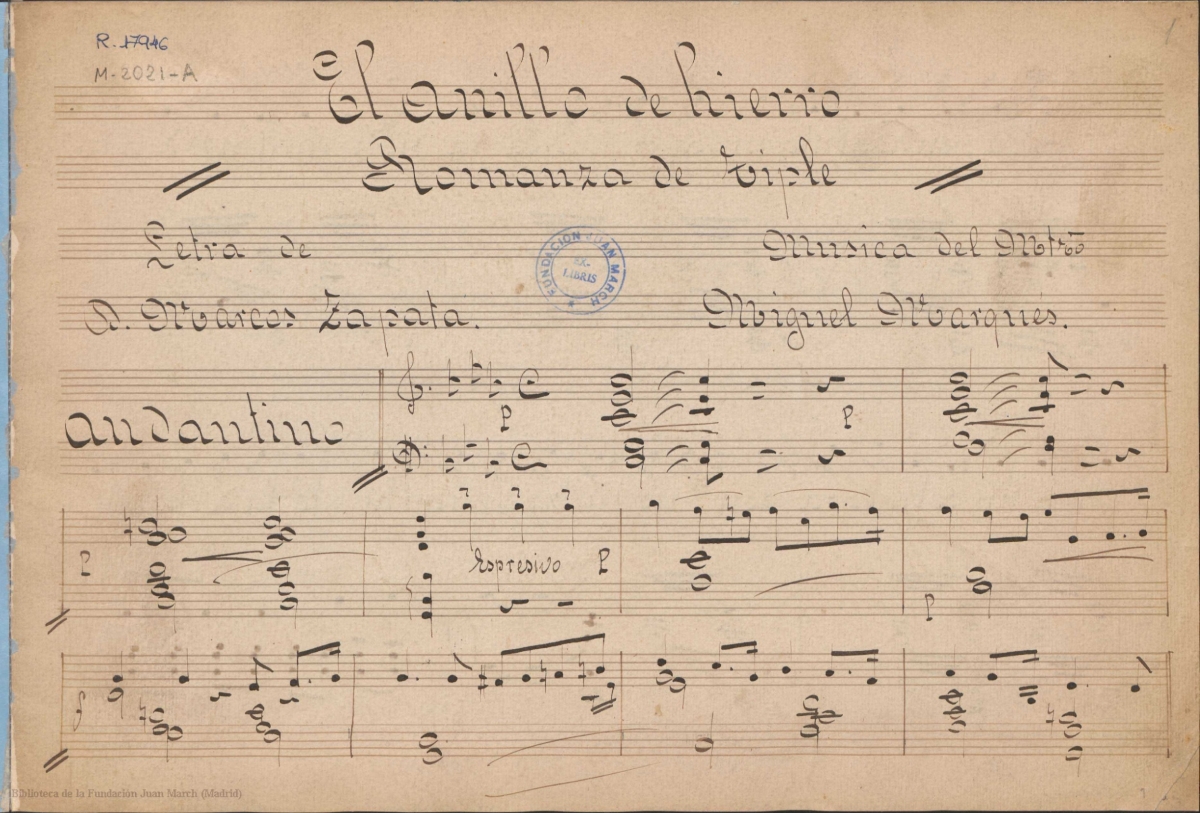 R. 17946
M-2021-A
El anillo de hierro
Romanza de tiple
Letra de
Musica del Mtrō
D. Marcos Zapata.
Miguel Marqués.
FUNDACIÓN JUAN MARCH
EX-
LIBRIS
andantino
P
P
P
Espresivo P
P
f
Biblioteca de la Fundación Juan March (Madrid)